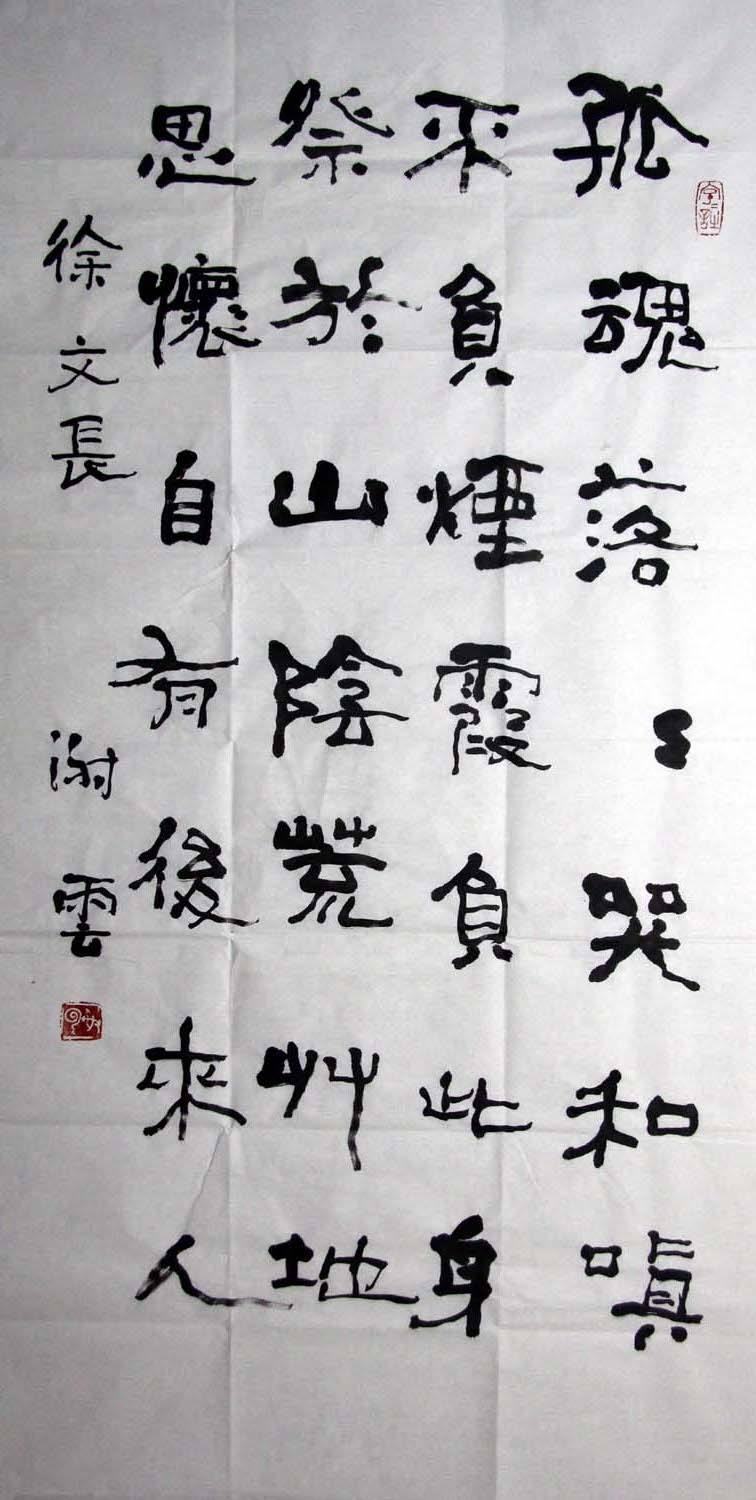 孤魂落〻哭和嗔
不負煙霞負此身
祭於山陰荒艸地
思懷自有後來人
徐文長
謝雲